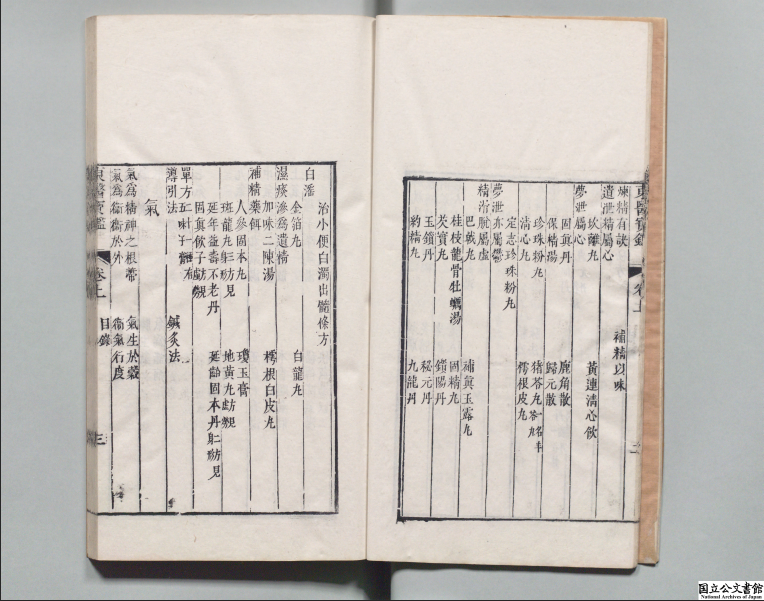 東醫寶鑑
卷上
煉精有訣　補精以味
遺泄精屬心
坎離丸　黃連清心飲
夢泄屬心
固眞丹　鹿角散
保精湯　歸元散
珍珠粉丸　猪苓丸
清心丸　樗根皮丸
定志珍珠粉丸
夢泄亦屬鬱
精滑脫屬虛
巴戟丸　補眞玉露丸
桂枝龍骨牡蠣湯　固精丸
芡實丸　鎖陽丹
玉鎖丹　秘元丹
約精丸　九龍丹
白淫
治小便白濁出髓條方
金箔丸　白龍丸
濕痰滲爲遺精
加味二陳湯　樗根白皮丸
補精藥餌
人參固本丸　瓊玉膏
斑龍丸　地黃丸
延年益壽不老丹　延齡固本丹
固眞飮子
單方
五味子膏
導引法　鍼灸法
氣
氣爲精神之根蔕　氣生於穀
氣爲衛衛於外　衛氣行度
東醫寶鑑　卷上　目錄　三
国立公文書館
National Archives of Japan